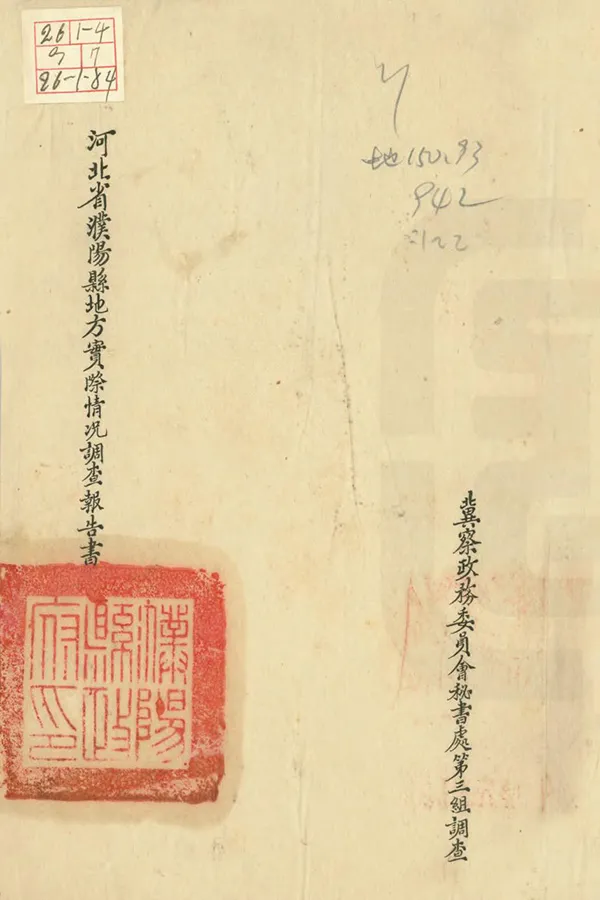 冀察政務委員會秘書處第三組調查
河北省濮陽縣地方實際情况調查報告書
濮陽縣政府印
地150.93
942
:122
26 1-4
7
26-1-84